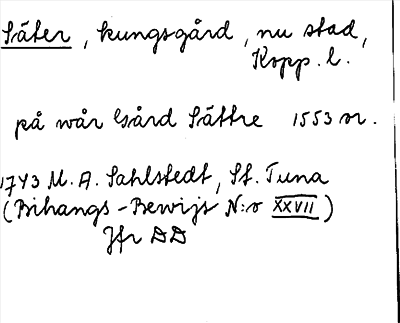 Säter, kungsgård, nu stad,
Kopp. l.
på wår Gård Sättre 1553 or.
1743 M. A. Sahlstedt, St. Tuna
(Bihangs-Bewijs N:o XXVII)
Jfr DD